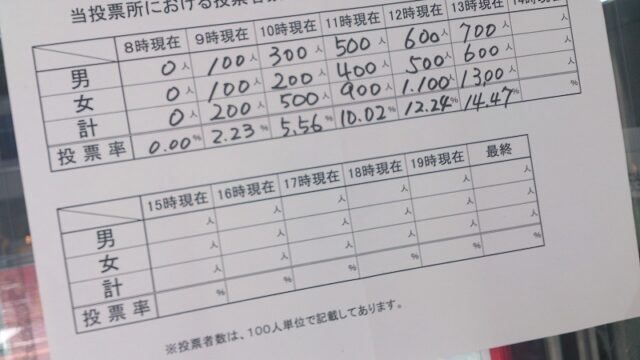 当投票所における投票者数
8時現在 9時現在 10時現在 11時現在 12時現在 13時現在 14時現在
男 0人 100人 300人 500人 600人 700人 人
女 0人 100人 200人 400人 500人 600人 人
計 0人 200人 500人 900人 1.100人 1300人 人
投票率 0.00% 2.23% 5.56% 10.02% 12.24% 14.47% %
15時現在 16時現在 17時現在 18時現在 19時現在 最終
男 人 人 人 人 人 人
女 人 人 人 人 人 人
計 人 人 人 人 人 人
投票率 % % % % % %
※投票者数は、100人単位で記載してあります。